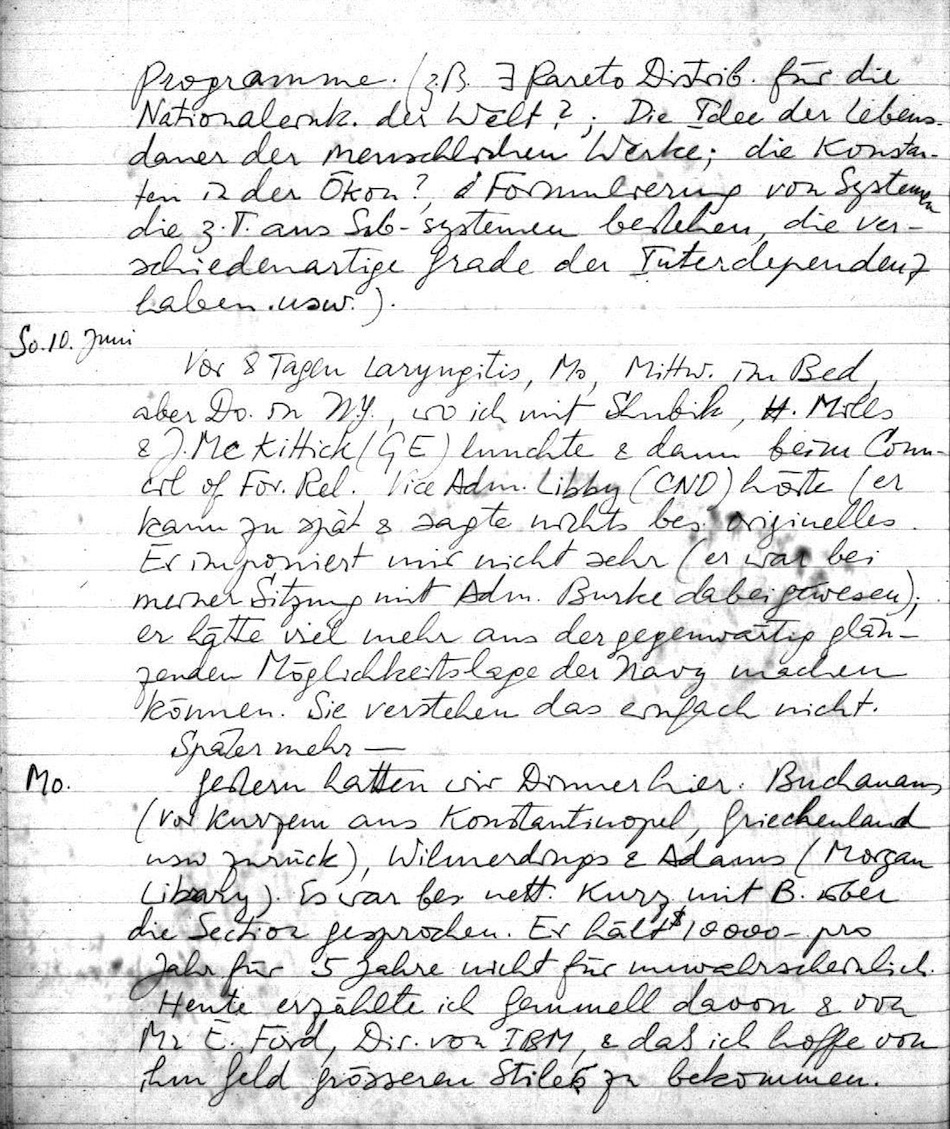 Programme. (z.B. ∃ Pareto Distrib. für die
Nationaleink. der Welt?; Die Idee der Lebens-
dauer der menschlichen Werke; die Konstan-
ten in der Ökon?, Formulierung von Systemen
die z.T. aus Sub-systemen bestehen, die ver-
schiedenartige Grade der Interdependenz
haben. usw.).
So. 10. Juni
Vor 8 Tagen Laryngitis, Mo, Mittw. im Bed,
aber Do. in N.Y., wo ich mit Shubik, H. Mills
& J. McKittick (GE) lunchte & dann beim Coun-
cil of For. Rel. Vice Adm. Libby (CNO) hörte (er
kam zu spät & sagte nichts bes. originelles.
Er imponiert mir nicht sehr (er war bei
meiner Sitzung mit Adm. Burke dabeigewesen);
er hätte viel mehr aus der gegenwärtig glän-
zenden Möglichkeitslage der Navy machen
können. Sie verstehen das einfach nicht.
Später mehr —
Mo.
Gestern hatten wir Dinner hier. Buchanans
(vor kurzem aus Konstantinopel, Griechenland
usw zurück), Wilmerdings & Adams (Morgan
Library). Es war bes. nett. Kurz mit B. über
die Section gesprochen. Er hält $10000– pro
Jahr für 5 Jahre nicht für unwahrscheinlich.
Heute erzählte ich Gemmell davon & von
Mr E. Ford, Dir. von IBM, & daß ich hoffe von
ihm Geld grösseren Stiles zu bekommen.